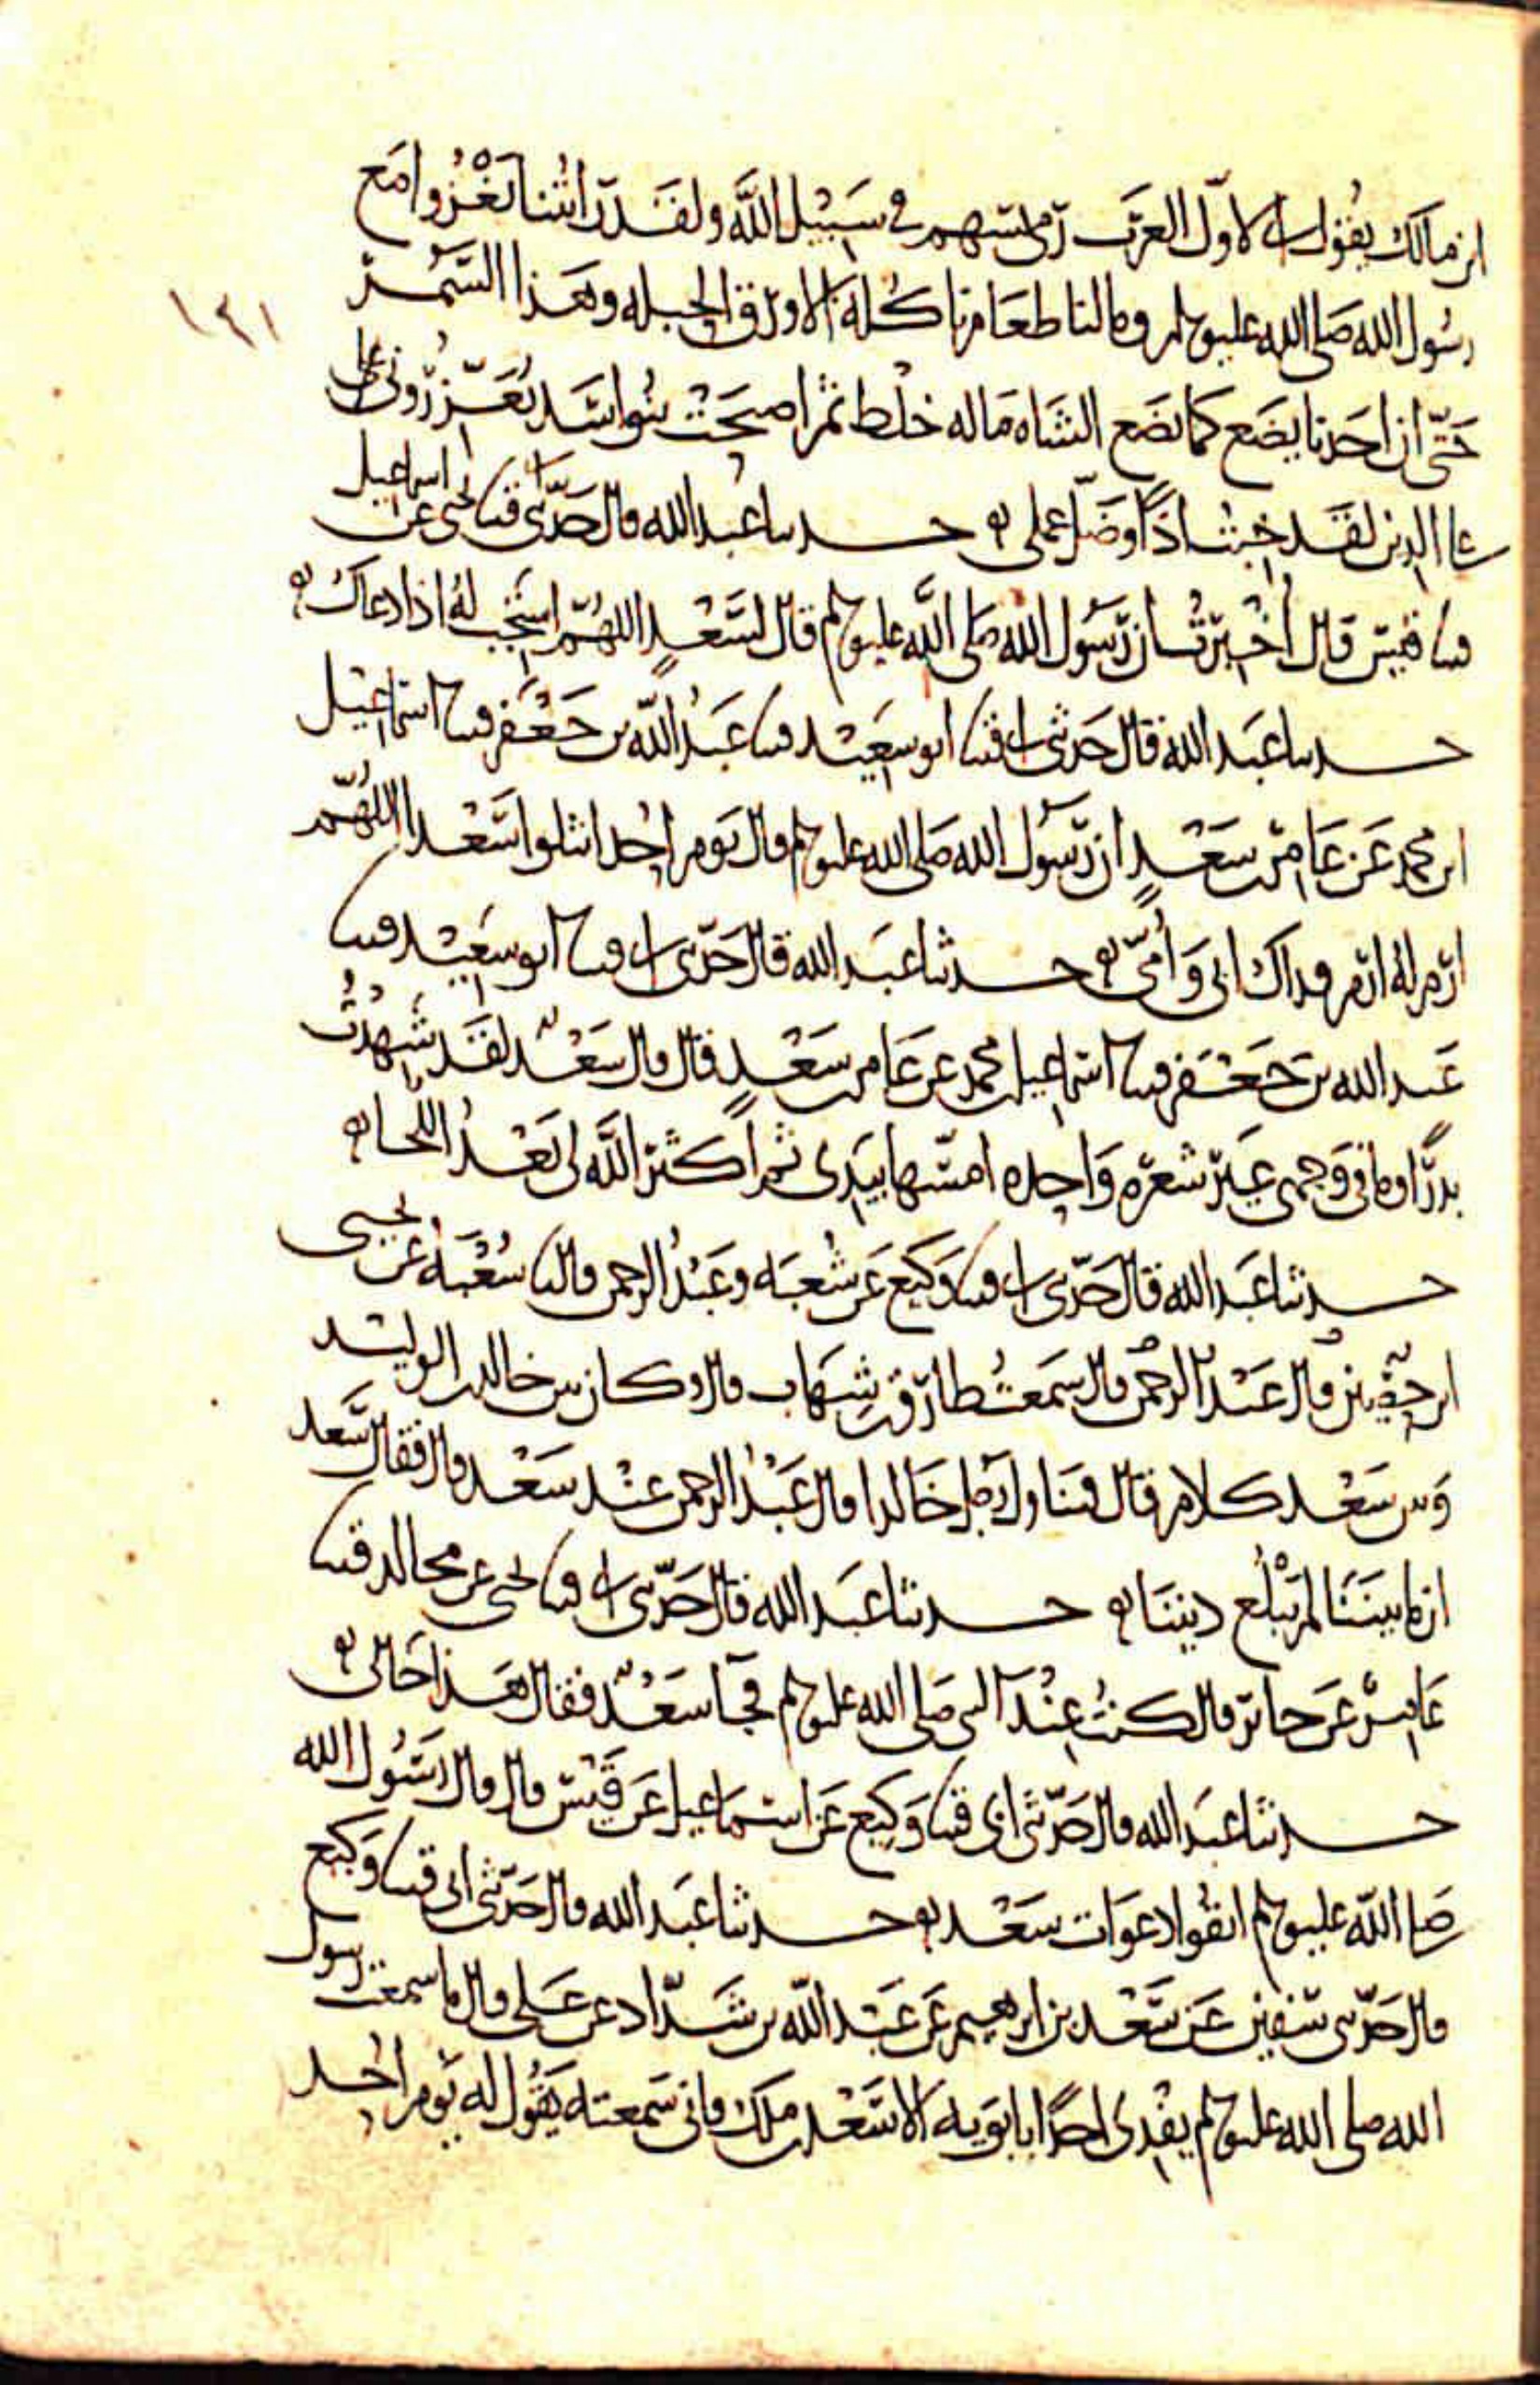 ابن مالك يقول انى لاول العرب رمى بسهم في سبيل الله ولقد رايتنا نغزوا مع
رسول الله صلى الله عليه وسلم وما لنا طعام ناكله الا ورق الحبله وهذا السمر
١٤١
حتى ان احدنا ليضع كما تضع الشاه ماله خلط ثم اصبحت بنو اسد تعزرونى على
على الدين لقد خبت اذا وضل عملى حدثنا عبد الله قال حدثنى ابى قثنا يحيى عن اسماعيل
قثنا قيس قال اخبرت ان رسول الله صلى الله عليه وسلم قال لسعد اللهم استجب له اذا دعاك
حدثنا عبد الله قال حدثنى ابى قثنا ابو سعيد قثنا عبد الله بن جعفر قثنا اسماعيل
ابن محمد عن عامر بن سعد ان رسول الله صلى الله عليه وسلم قال يوم احد انثلوا سعدا اللهم
ارم له ارم فداك ابى وامى حدثنا عبد الله قال حدثنى ابى قثنا ابو سعيد قثنا
عبد الله بن جعفر قثنا اسماعيل بن محمد عن عامر بن سعد قال قال سعد لقد شهدت
بدرا وما فى وجهى غير شعره واحده امسها بيدى ثم اكثر الله لى بعد اللحا
حدثنا عبد الله قال حدثنى ابى قثنا وكيع عن شعبه وعبد الرحمن قالثنا شعبه عن يحيى
ابن حصين قال عبد الرحمن قال سمعت طارق بن شهاب قال وكان بين خالد بن الوليد
وبين سعد كلام قال فتناول رجل خالدا قال عبد الرحمن عند سعد قال فقال سعد
ان ما بيننا لم يبلغ ديننا حدثنا عبد الله قال حدثنى ابى قثنا يحيى عن مجالد قثنا
عامر عن جابر قال كنت عند النبى صلى الله عليه وسلم فجا سعد فقال هذا خالى
حدثنا عبد الله قال حدثنى ابى قثنا وكيع عن اسماعيل عن قيس قال قال رسول الله
صلى الله عليه وسلم اتقوا دعوات سعد حدثنا عبد الله قال حدثنى ابى قثنا وكيع
قال حدثنى سفين عن سعد بن ابرهيم عن عبد الله بن شداد عن على قال ما سمعت رسول
الله صلى الله عليه وسلم يفدى احدا بابويه الا سعد بن ملك فانى سمعته يقول له يوم احد